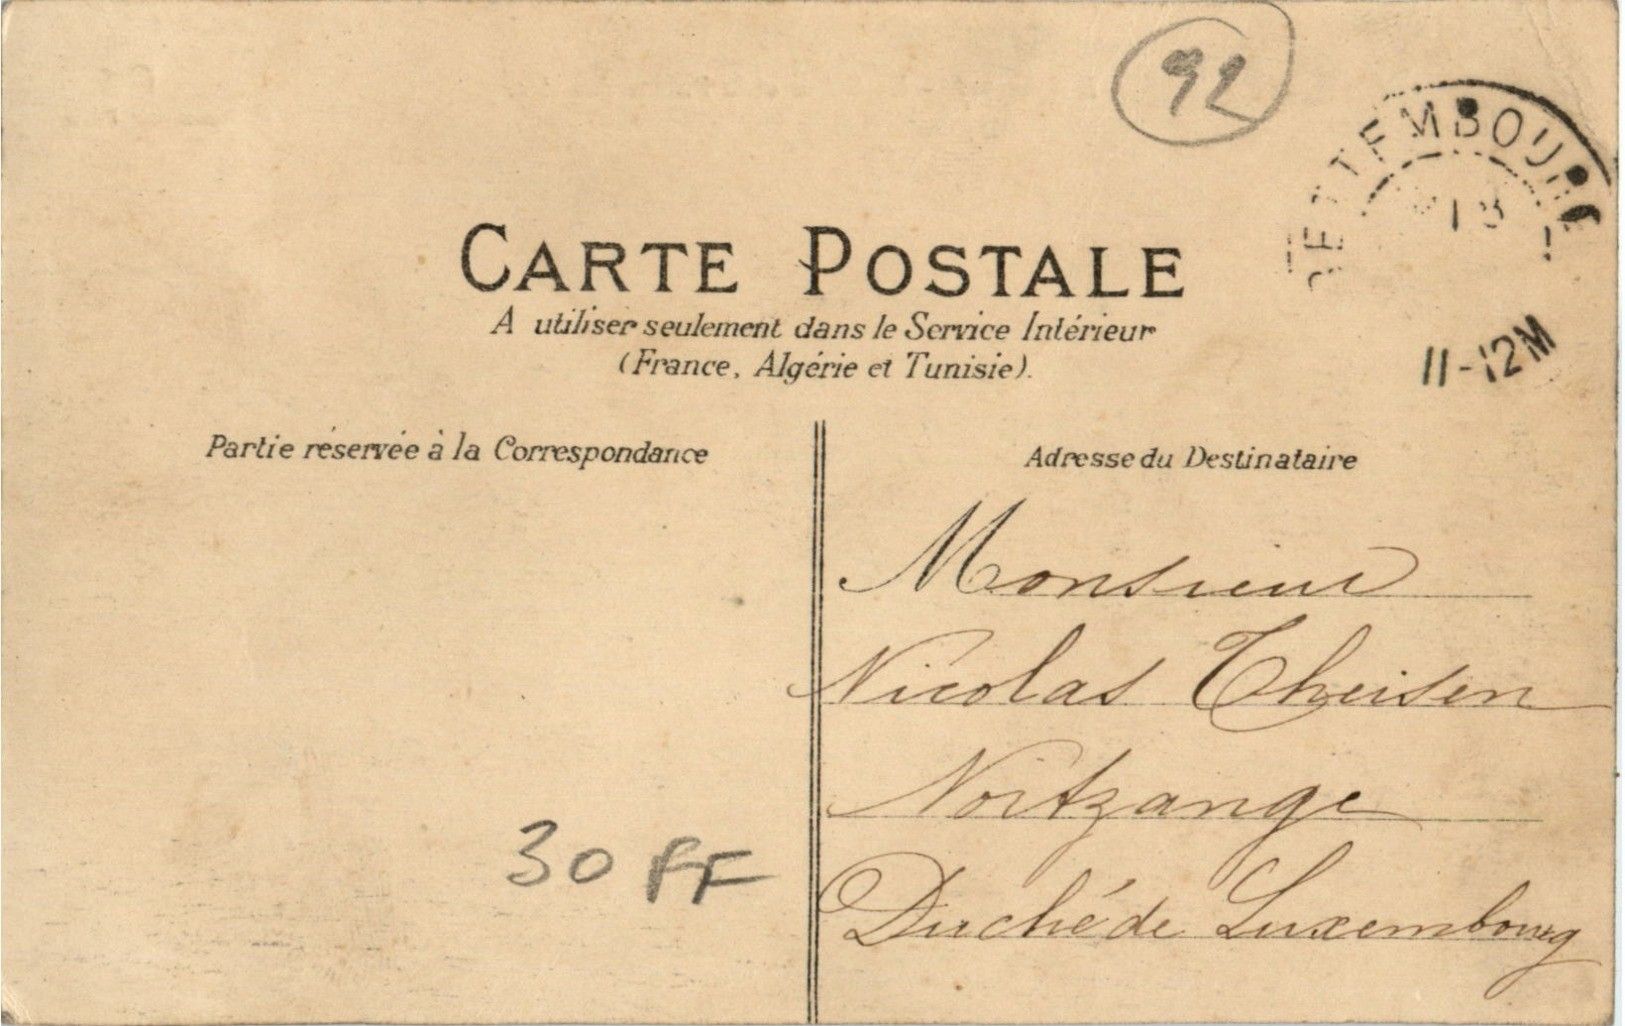 92
BETTEMBOURG
13
11-12M
CARTE POSTALE
A utiliser seulement dans le Service Intérieur
(France, Algérie et Tunisie).
Partie réservée à la Correspondance
Adresse du Destinataire
Monsieur
Nicolas Theisen
Nortzange
Duché de Luxembourg
30 FF